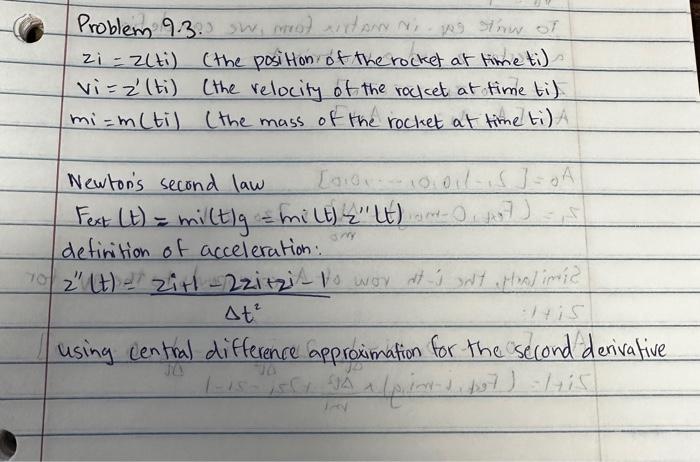 Problem 9.3.
zi = z(ti) (the position of the rocket at time ti)
vi = z'(ti) (the velocity of the rocket at time ti)
mi = m(ti) (the mass of the rocket at time ti)
Newton's second law
Fext (t) = mi(t)g = mi(t) z''(t)
definition of acceleration:
z''(t) = zi+1 - 2zi+zi-1
Δt²
using central difference approximation for the second derivative